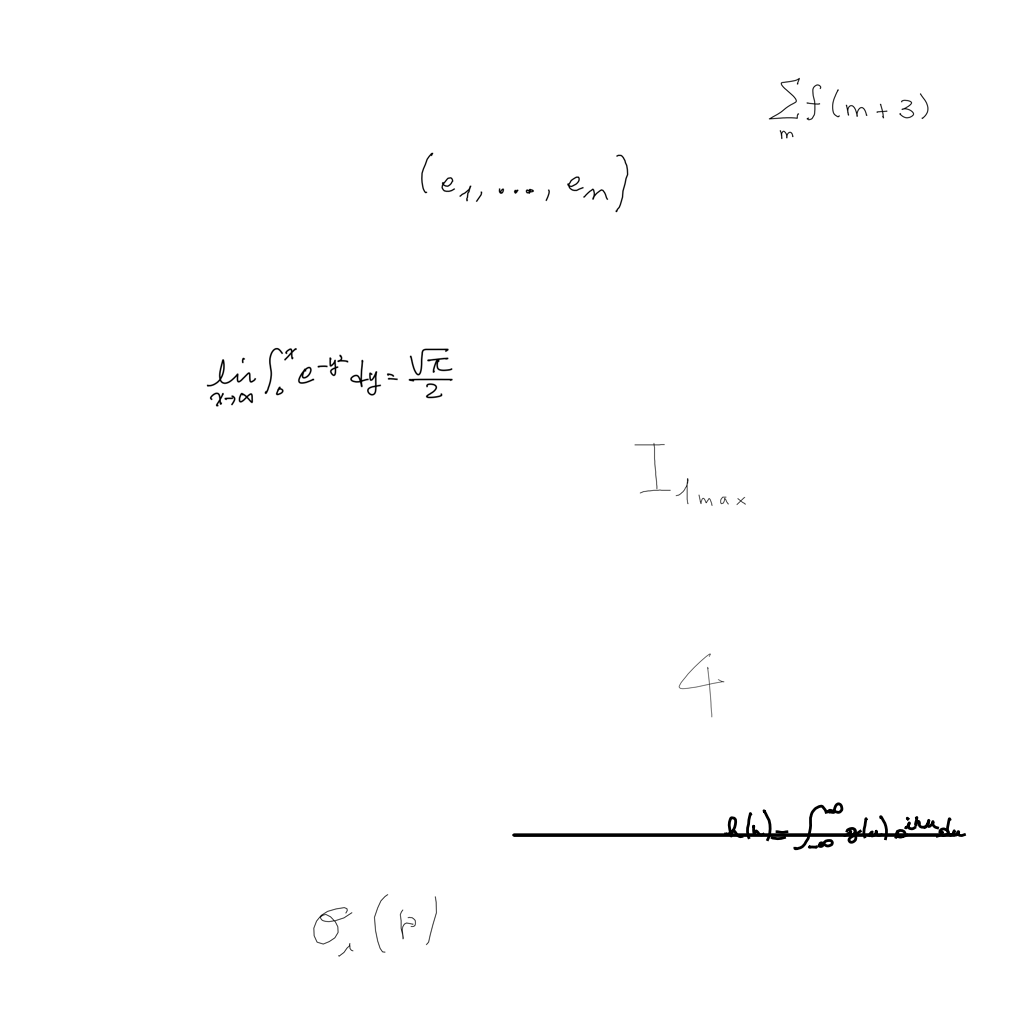 ∑_m f(m+3)
(e_1, ..., e_n)
lim_{x→∞} ∫_0^x e^{-y^2} dy = √π/2
I_{1max}
4
h(r) = ∫_{-∞}^{∞} g(u) e^{iru} du
σ_i(p)